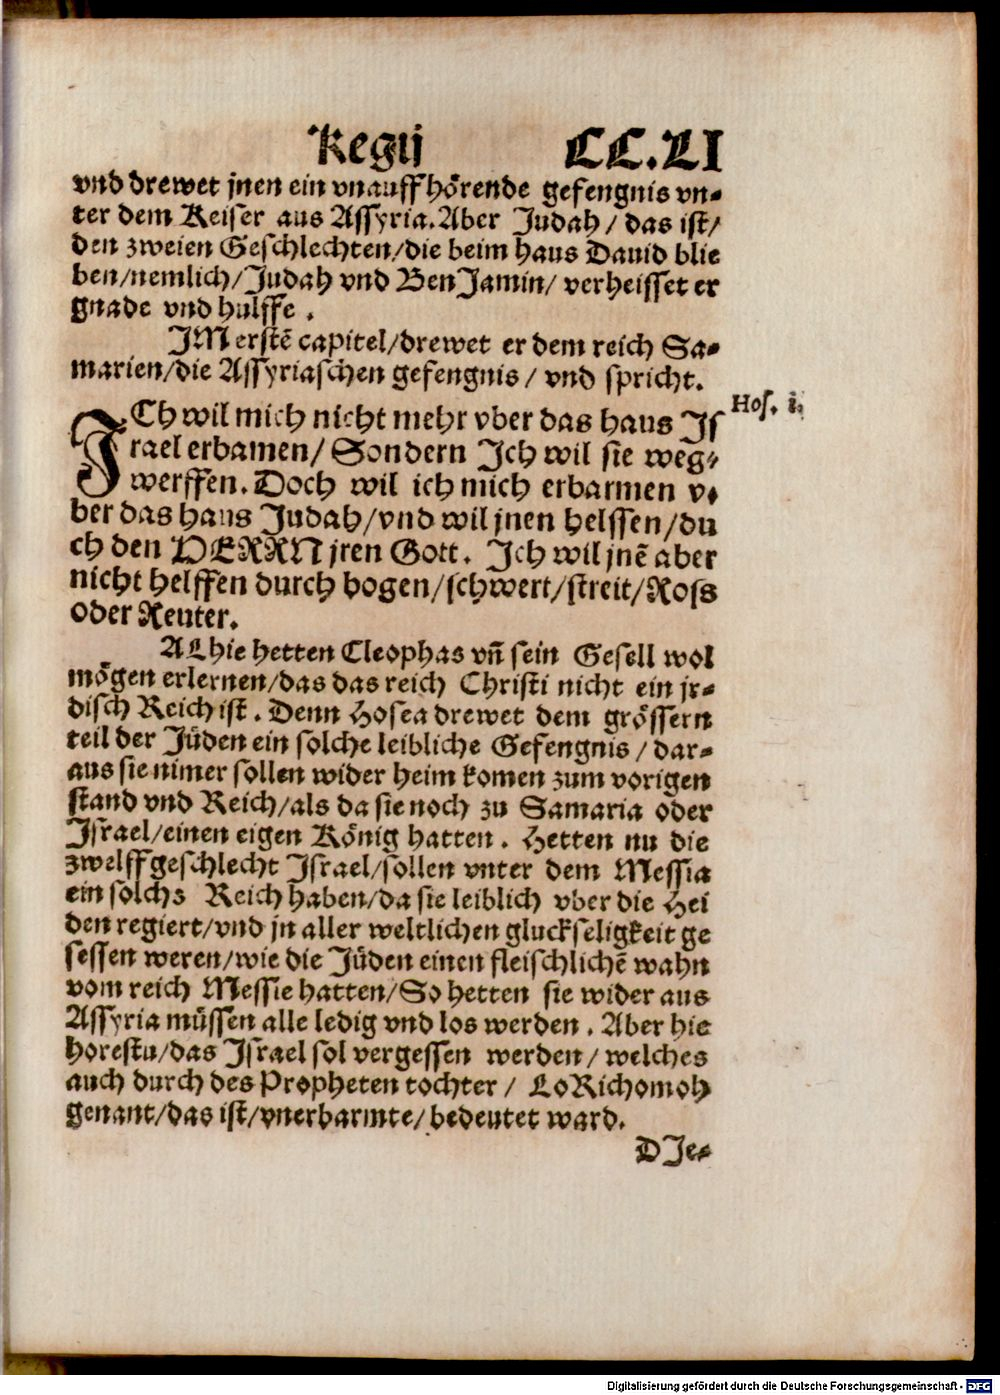 Regij CC.LI
vnd drewet jnen ein vnauffhörende gefengnis vn-
ter dem Keiser aus Assyria. Aber Judah / das ist/
den zweien Geschlechten/die beim haus Dauid blie
ben/nemlich/Judah vnd BenJamin/ verheisset er
gnade vnd hulffe .
JM erstē capitel/drewet er dem reich Sa-
marien/die Assyriaschen gefengnis / vnd spricht.
Hos. i.
JCh wil mich nicht mehr vber das haus Js
rael erbamen/ Sondern Jch wil sie weg-
werffen. Doch wil ich mich erbarmen v-
ber das haus Judah/vnd wil jnen helssen/du
ch den HERRN jren Gott. Jch wil jnē aber
nicht helffen durch bogen/schwert/streit/Ross
oder Reuter.
ALhie hetten Cleophas vñ sein Gesell wol
mögen erlernen/das das reich Christi nicht ein jr-
disch Reich ist . Denn Hosea drewet dem grössern
teil der Jüden ein solche leibliche Gefengnis / dar-
aus sie nimer sollen wider heim komen zum vorigen
stand vnd Reich/als da sie noch zu Samaria oder
Jsrael/einen eigen König hatten . Hetten nu die
zwelffgeschlecht Jsrael/sollen vnter dem Messia
ein solchs Reich haben/da sie leiblich vber die Hei
den regiert/vnd jn aller weltlichen gluckseligkeit ge
sessen weren/wie die Jüden einen fleischlichē wahn
vom reich Messie hatten/So hetten sie wider aus
Assyria müssen alle ledig vnd los werden . Aber hie
horestu/das Jsrael sol vergessen werden/ welches
auch durch des Propheten tochter / LoRichomoh
genant/das ist/vnerbarmte/bedeutet ward.
DJe-
Digitalisierung gefördert durch die Deutsche Forschungsgemeinschaft - DFG